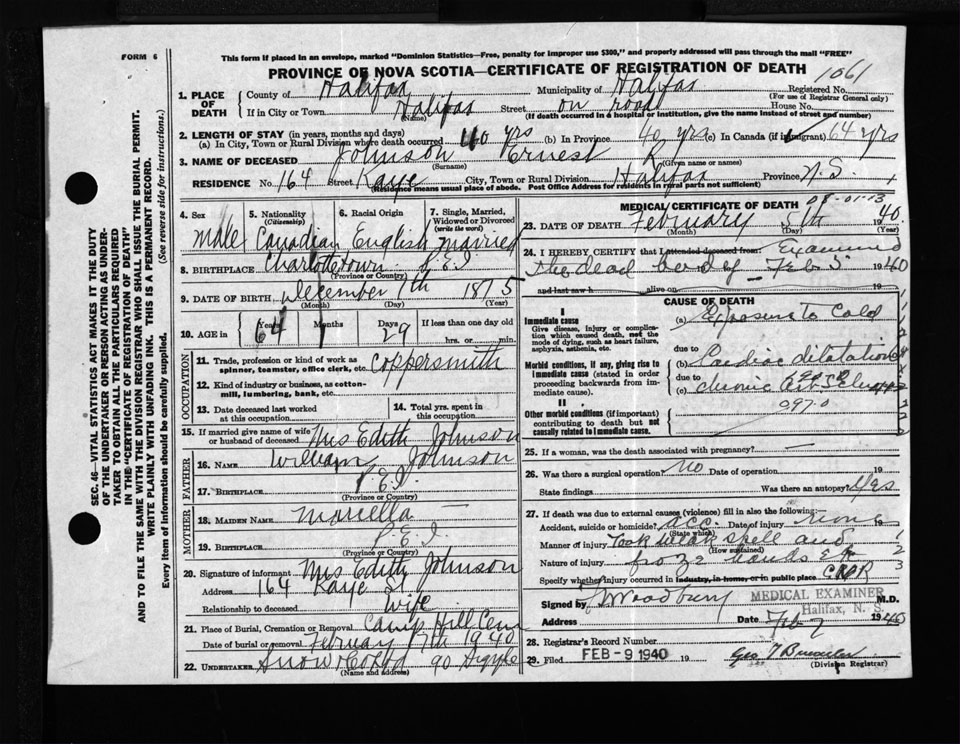 FORM 6
This form if placed in an envelope, marked "Dominion Statistics—Free, penalty for improper use $300," and properly addressed will pass through the mail "FREE"
PROVINCE OF NOVA SCOTIA—CERTIFICATE OF REGISTRATION OF DEATH
1061
1. PLACE OF DEATH
County of Halifax
Municipality of Halifax
Registered No.
(For use of Registrar General only)
If in City or Town Halifax
(Name)
Street on road House No.
(If death occurred in a hospital or institution, give the name instead of street and number)
2. LENGTH OF STAY (in years, months and days)
(a) In City, Town or Rural Division where death occurred 40 yrs (b) In Province 40 yrs (c) In Canada (if immigrant) 64 yrs
3. NAME OF DECEASED Johnson Ernest R
(Surname) (Given name or names)
RESIDENCE No. 164 Street Kaye City, Town or Rural Division Halifax Province N.S.
(Residence means usual place of abode. Post Office Address for residents in rural parts not sufficient)
4. Sex
Male
5. Nationality (Citizenship)
Canadian
6. Racial Origin
English
7. Single, Married, Widowed or Divorced (write the word)
Married
8. BIRTHPLACE Charlottetown P.E.I.
(Province or Country)
9. DATE OF BIRTH December 7th 1875
(Month) (Day) (Year)
10. AGE in
Years 64
Months 1
Days 29
If less than one day old
hrs. or min.
OCCUPATION
11. Trade, profession or kind of work as spinner, teamster, office clerk, etc. Coppersmith
12. Kind of industry or business, as cotton-mill, lumbering, bank, etc.
13. Date deceased last worked at this occupation
14. Total yrs. spent in this occupation
15. If married give name of wife or husband of deceased Mrs Edith Johnson
FATHER
16. NAME William Johnson
17. BIRTHPLACE P.E.I.
(Province or Country)
MOTHER
18. MAIDEN NAME Mariella —
19. BIRTHPLACE P.E.I.
(Province or Country)
20. Signature of informant Mrs Edith Johnson
Address 164 Kaye St
Relationship to deceased Wife
21. Place of Burial, Cremation or Removal Camp Hill Cem
Date of burial or removal 7th 1940
22. UNDERTAKER Snow & Co Ltd 90 Argyle
(Name and address)
MEDICAL CERTIFICATE OF DEATH
08-01-13
23. DATE OF DEATH February 5th 1940
(Month) (Day) (Year)
24. I HEREBY CERTIFY that I attended deceased from Examined
the dead body of Feb 5 1940
and last saw h alive on
CAUSE OF DEATH
I
Immediate cause
Give disease, injury or complication which caused death, not the mode of dying, such as heart failure, asphyxia, asthenia, etc.
(a) Exposure to Cold
due to
Morbid conditions, if any, giving rise to immediate cause (stated in order proceeding backwards from immediate cause).
(b) Cardiac dilatation
due to
(c) chronic
II
Other morbid conditions (if important) contributing to death but not causally related to immediate cause.
097.0
25. If a woman, was the death associated with pregnancy? —
26. Was there a surgical operation? no Date of operation 19
State findings Was there an autopsy? Yes
27. If death was due to external causes (violence) fill in also the following:—
Accident, suicide or homicide? acc. Date of injury 19
(State which)
Manner of injury Took weak spell and
(How sustained)
Nature of injury froze hands etc
Specify whether injury occurred in industry, in home, or in public place
Signed by Woodbury M.D.
MEDICAL EXAMINER
Halifax, N. S.
Address Date Feb 7 1940
28. Registrar's Record Number
29. Filed FEB - 9 1940 19
(Division Registrar)
SEC. 46—VITAL STATISTICS ACT MAKES IT THE DUTY OF THE UNDERTAKER OR PERSON ACTING AS UNDERTAKER TO OBTAIN ALL THE PARTICULARS REQUIRED IN THE "CERTIFICATE OF REGISTRATION OF DEATH" AND TO FILE THE SAME WITH THE DIVISION REGISTRAR WHO SHALL ISSUE THE BURIAL PERMIT.
WRITE PLAINLY WITH UNFADING INK. THIS IS A PERMANENT RECORD.
Every item of information should be carefully supplied. (See reverse side for instructions.)